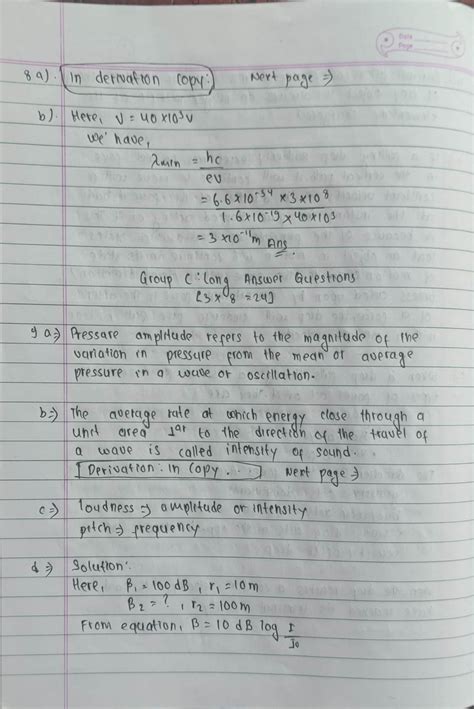 Date
Page
8 a). In derivation copy: Next page ⇒
b). Here, V = 40 × 10³ V
we have,
λmin = hc
eV
= 6.6 × 10⁻³⁴ × 3 × 10⁸
1.6 × 10⁻¹⁹ × 40 × 10³
= 3 × 10⁻¹¹ m Ans
Group C : Long Answer Questions
[3 × 8 = 24]
9 a ⇒ Pressure amplitude refers to the magnitude of the
variation in pressure from the mean or average
pressure in a wave or oscillation.
b ⇒ The average rate at which energy close through a
unit area ⊥ar to the direction of the travel of
a wave is called intensity of sound.
[Derivation: in copy . . .] Next page ⇒
c ⇒ loudness ⇒ amplitude or intensity
pitch ⇒ frequency
d ⇒ Solution:
Here, β₁ = 100 dB , r₁ = 10 m
β₂ = ? , r₂ = 100 m
From equation, β = 10 dB log I
I₀